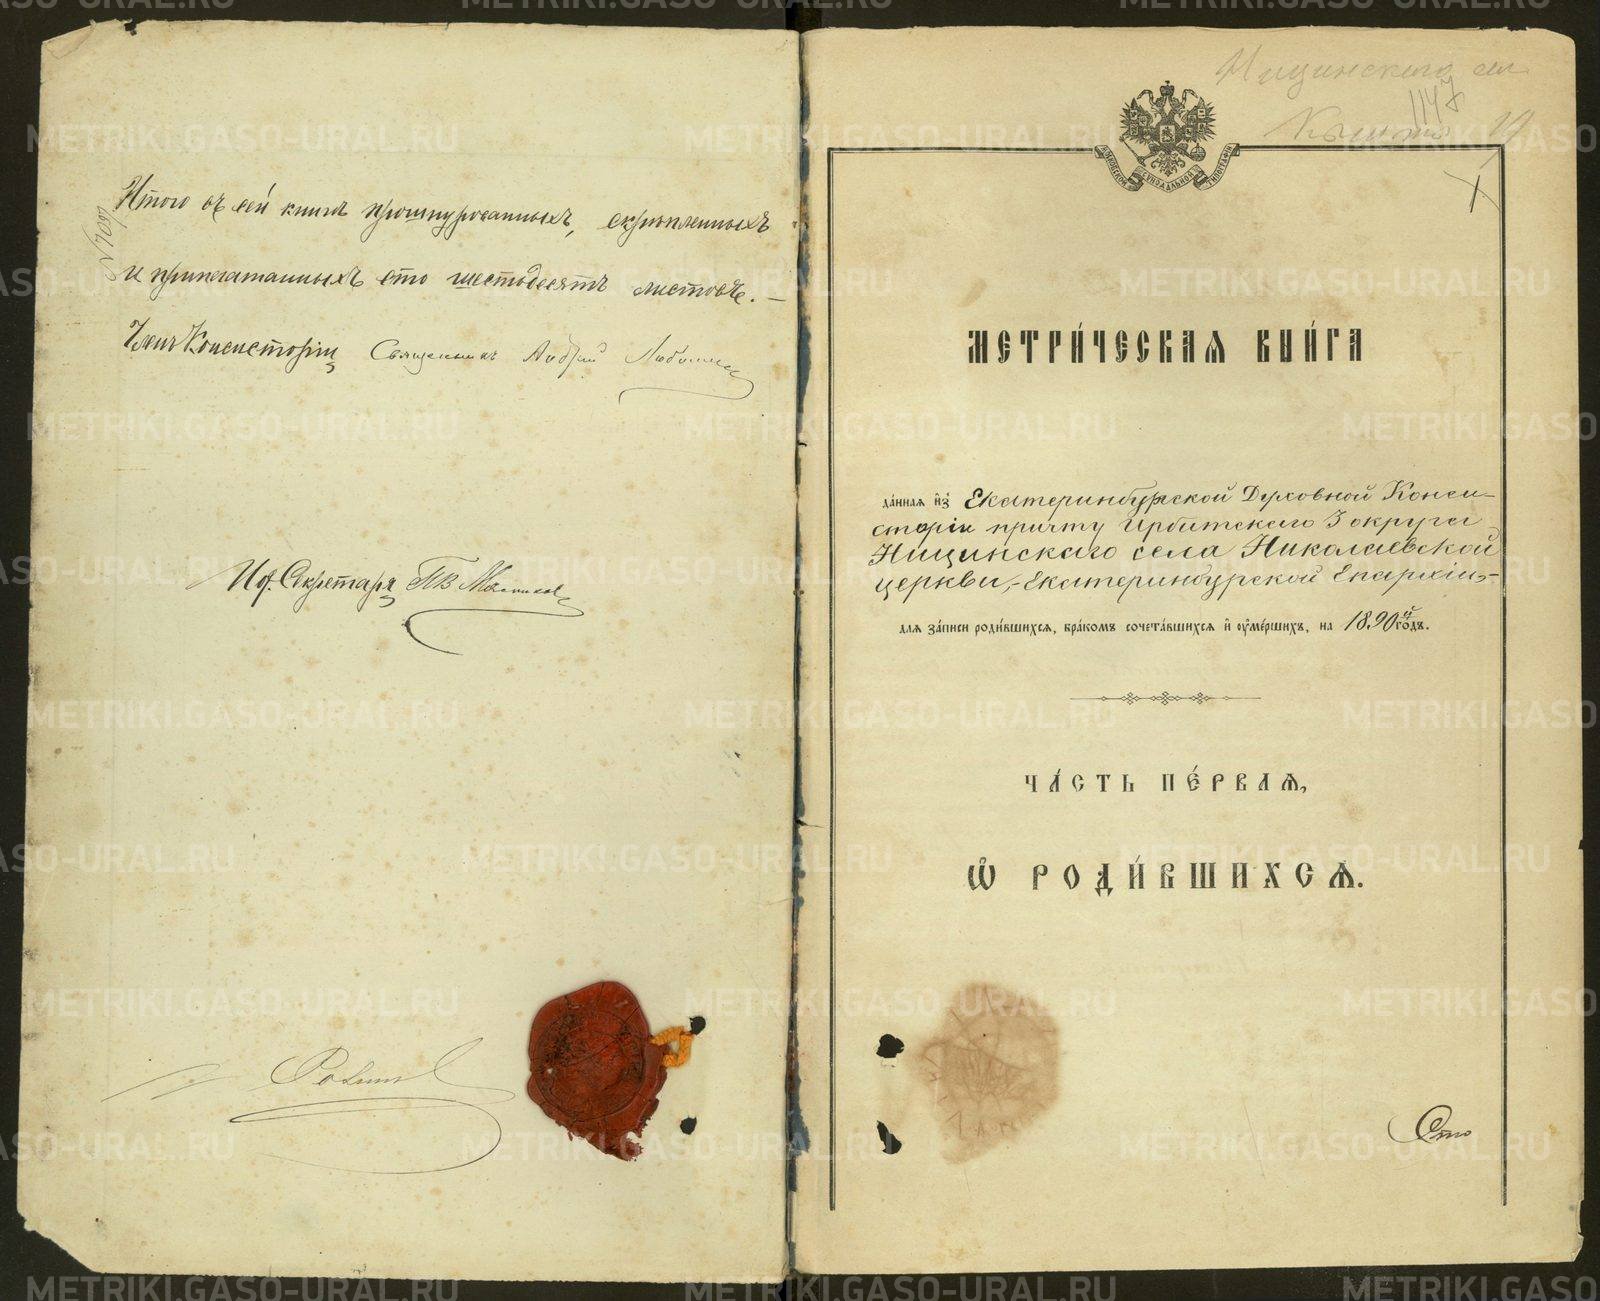 Итого въ сей книгѣ прошнурованныхъ, скрѣпленныхъ
и припечатанныхъ сто шестьдесятъ листовъ. —
Членъ Консисторіи Священникъ Андрей
Иф. Секретаря
Ницинскаго сел
1147
МОСКОВСКОЙ СѴНОДАЛЬНОЙ ТИПОГРАФІИ
МЕТРИ́ЧЕСКАѦ КНИ́ГА
да́нная и҆з̾ Екатеринбургской Духовной Конси-
сторіи причту Ирбитскаго 3 округа
Ницинскаго села Николаевской
церкви, Екатеринбургской Епархіи,-
для за́писи роди́вшихся, бра́комъ сочета́вшихся и҆ ᲂу҆ме́ршихъ, на 1890й го́дъ.
ЧА́СТЬ ПЕ́РВАѦ,
Ѽ РОДИ́ВШИХСѦ.
Сто
METRIKI.GASO-URAL.RU